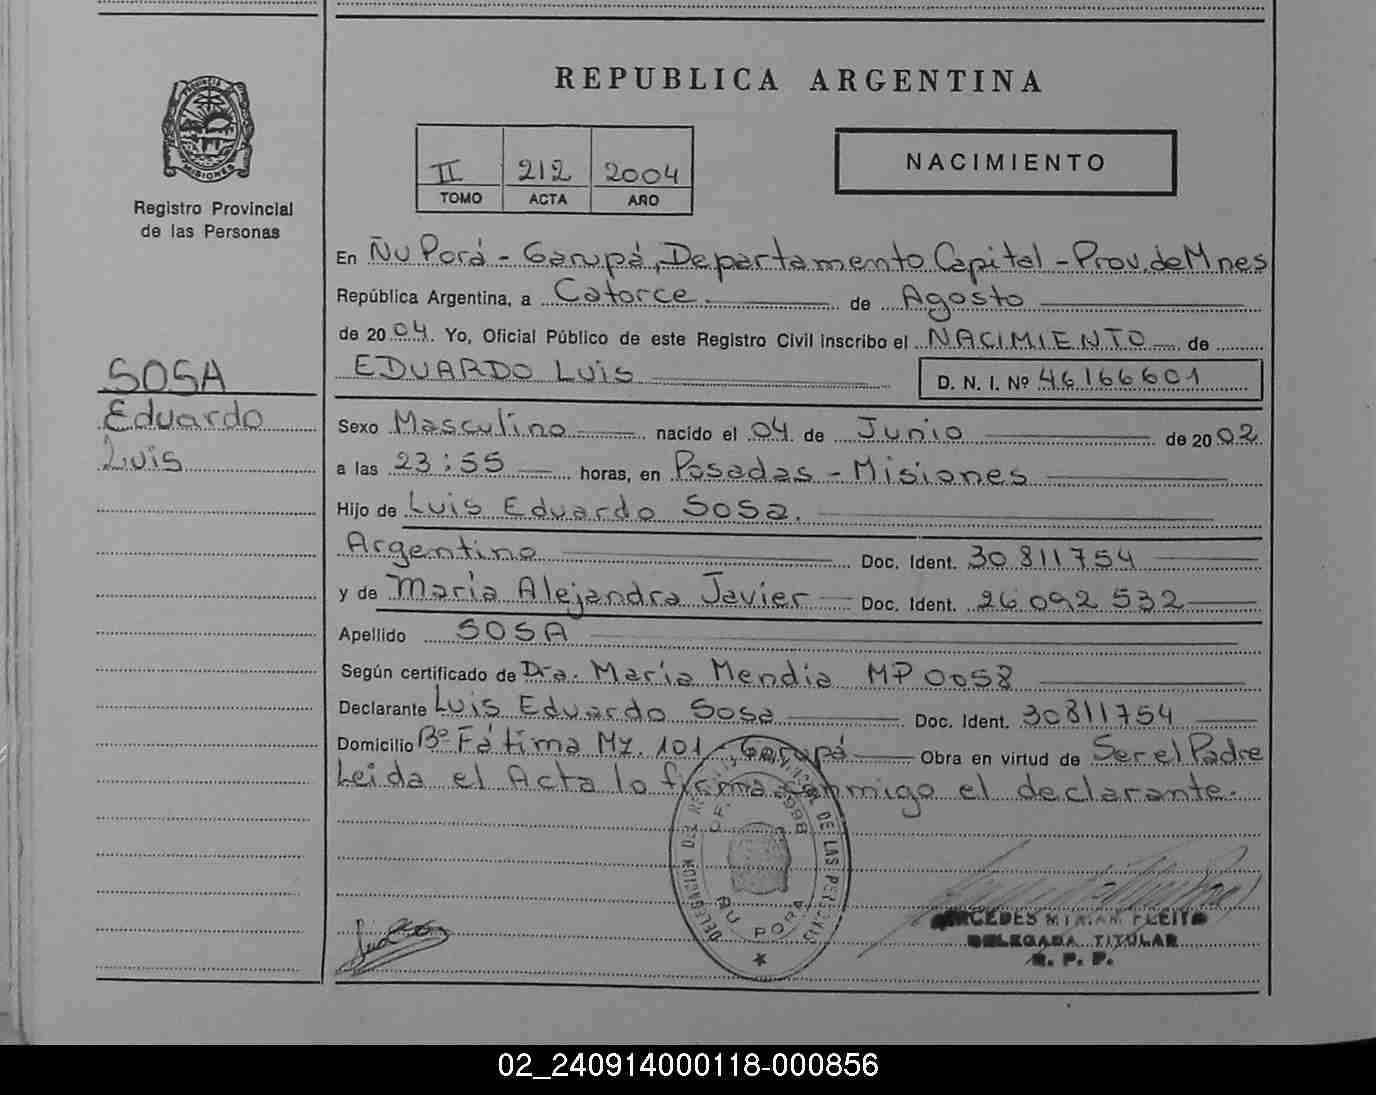 REPUBLICA ARGENTINA
PROVINCIA DE
MISIONES
Registro Provincial
de las Personas
II 212 2004
TOMO ACTA AÑO
NACIMIENTO
En Ñu Porá - Garupá, Departamento Capital - Prov. de Mnes
República Argentina, a Catorce de Agosto
de 2004. Yo, Oficial Público de este Registro Civil inscribo el NACIMIENTO de
EDUARDO LUIS D. N. I. Nº 46166601
SOSA
Eduardo
Luis
Sexo Masculino nacido el 04 de Junio de 2002
a las 23:55 horas, en Posadas - Misiones
Hijo de Luis Eduardo Sosa.
Argentino Doc. Ident. 30811754
y de Maria Alejandra Javier Doc. Ident. 26092532
Apellido SOSA
Según certificado de Dra. María Mendia MP 0058
Declarante Luis Eduardo Sosa Doc. Ident. 30811754
Domicilio Bº Fátima Mz. 101 - Garupá Obra en virtud de Ser el Padre
Leida el Acta lo firma conmigo el declarante.
DELEGACION DEL DE LAS PERSONAS
ÑU PORA
MIRIAM FLEITA
DELEGADA TITULAR
R. P. P.
02_240914000118-000856